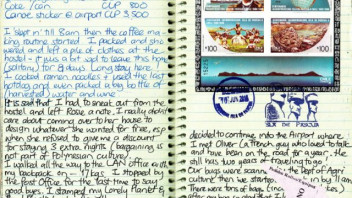 Coke / can CLP 800
Canoe sticker @ airport CLP 3,500
I slept n' till 8am then the coffee ma-
king routine started. I packed and sho
wered and left a pile of clothes at the
hostel - it was a bit sad to leave this home
(solitary) for 8 days. Long stay here!
I cooked ramen noodles & used the last
hotdog and even packed a tiny bottle of
harvested sugar and
It is sad that I had to sneak out from the
hostel and left Rosie a note. I really didn't
care about coming over to her house to
design whatever she wanted for free, esp
when she refused to give me a discount
for staying 3 extra nights (bargaining is
not part of Polynesian culture).
I walked all the way to the LAN office with
my backpack on - 17 kgs. I stopped by
the Post Office for the last time to say
good byes. I stamped my Lonely Planet &
$100
$100
ISLA DE PASCUA
decided to continue into the Airport where
I met Oliver (a French guy who loved to talk
and have been on the road for a year. He
still has two years of traveling to go).
Our bags were scanned by the Dept of Agri
culture then we started
There were tons of bags